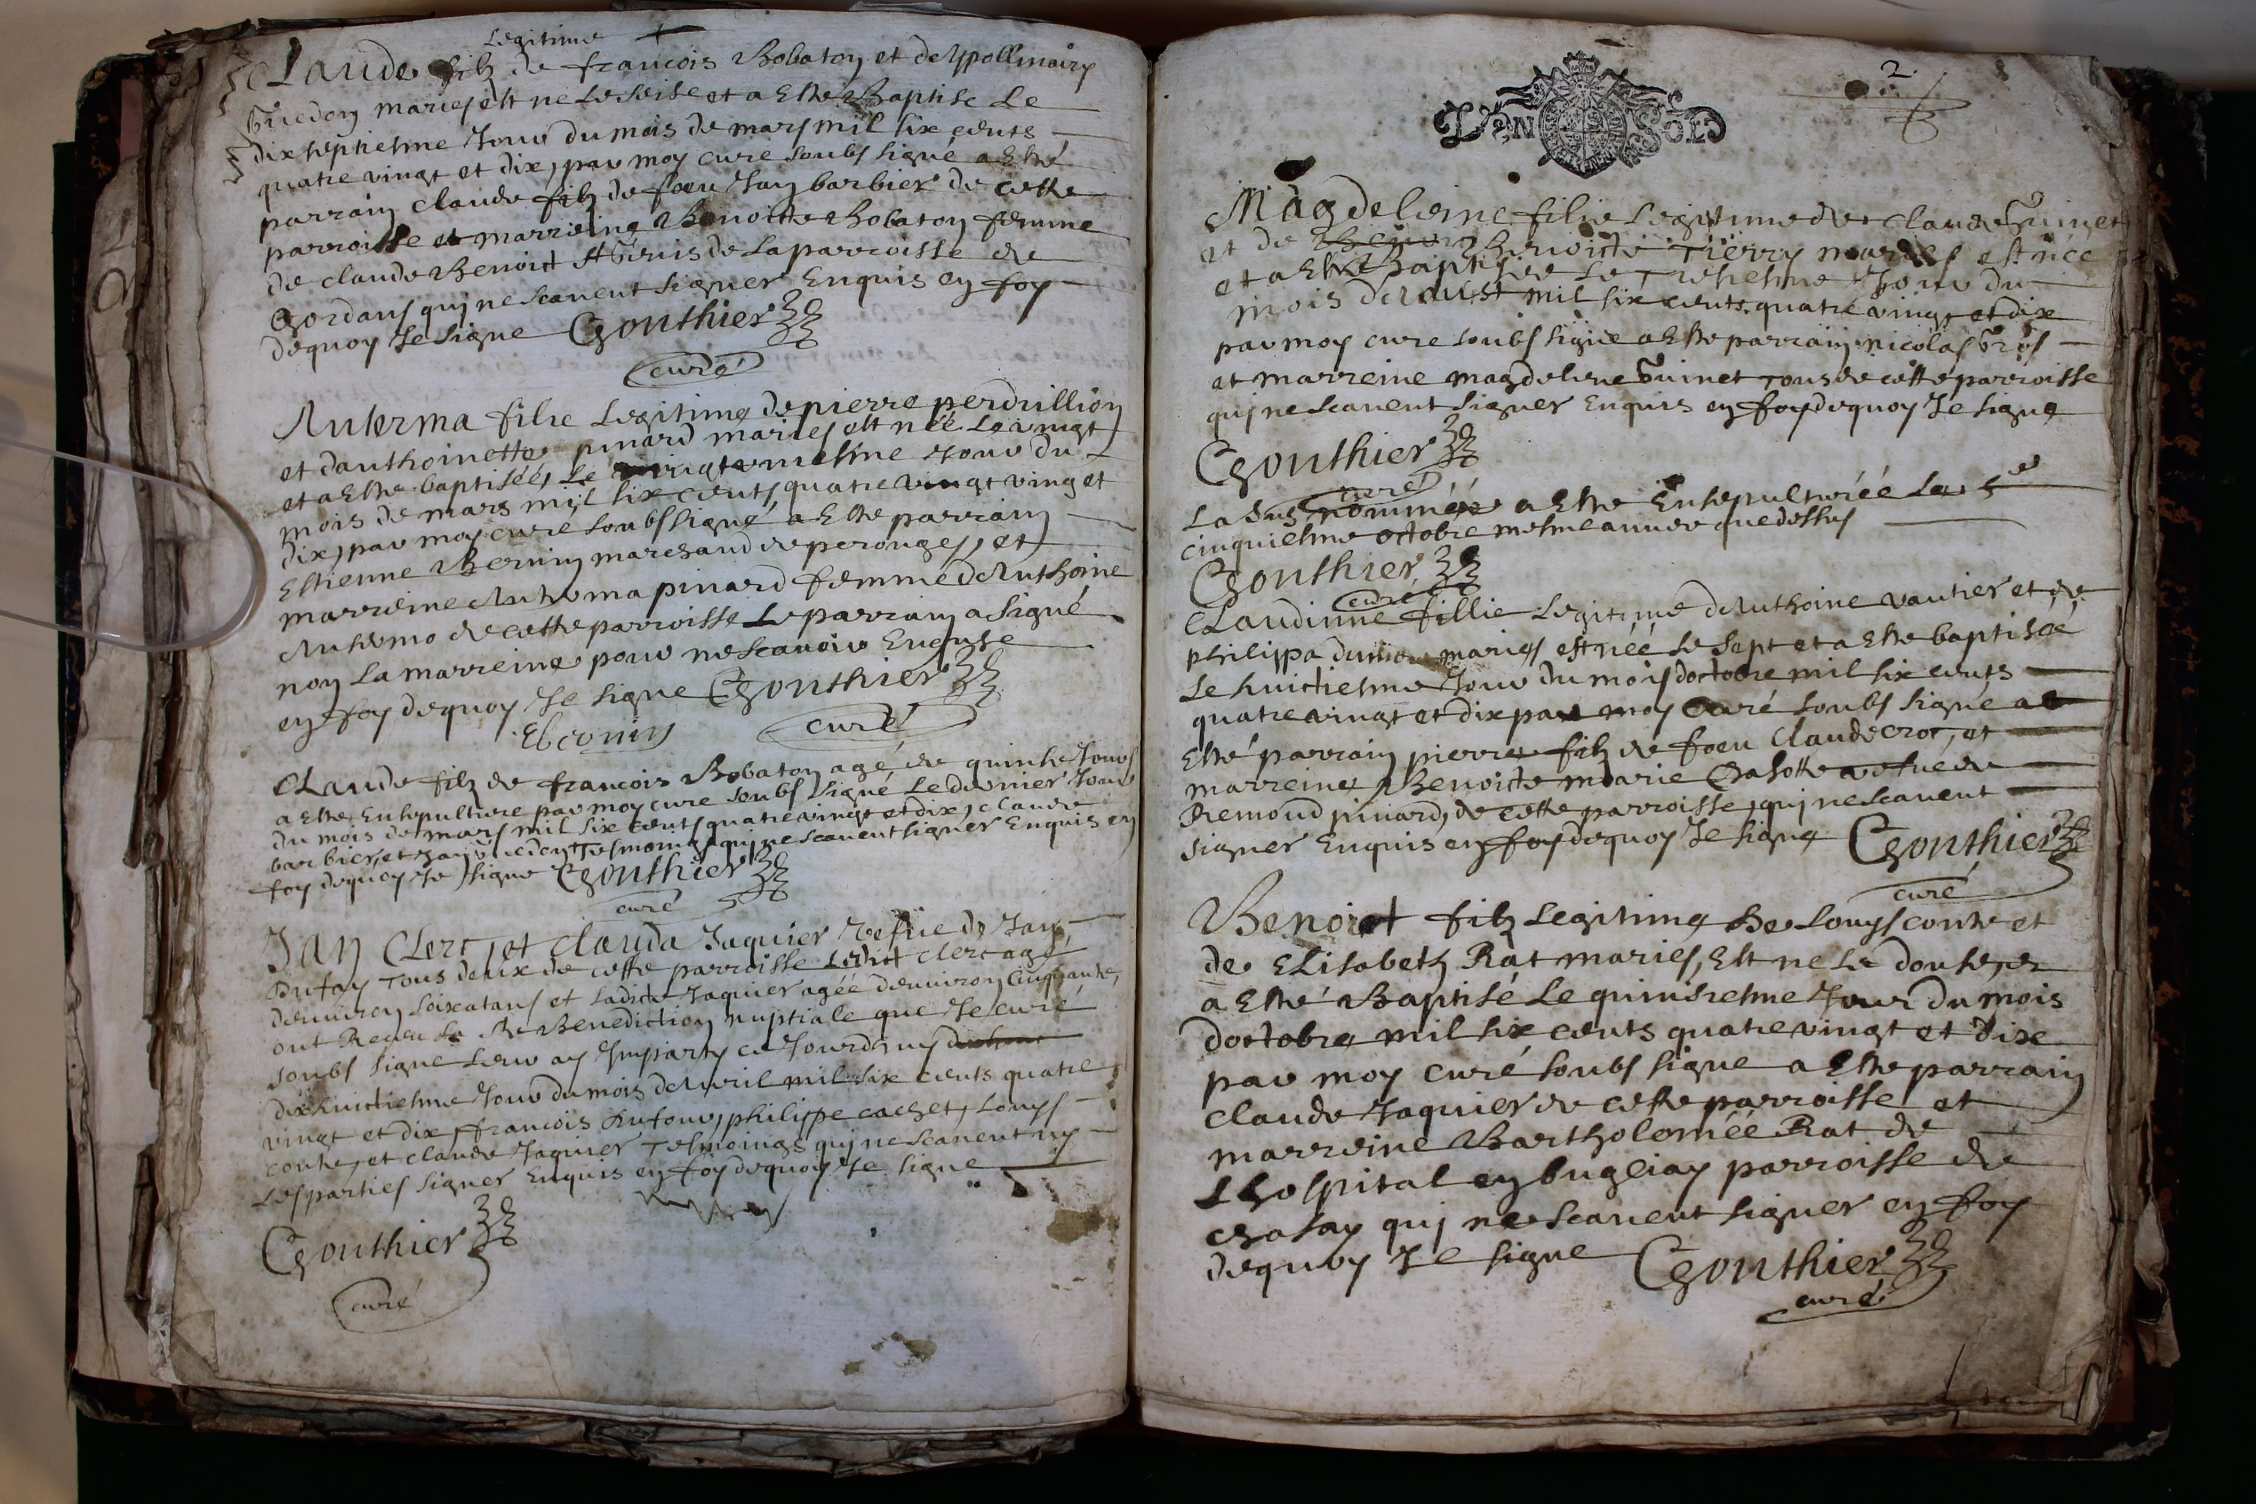 Legitime
Claude filz de francois Bobaton et de ypollinaire
Guedon maries est ne le seise et a Este Baptise Le
dix septiesme Jour du mois de mars mil six cents
quatre vingt et dix, par moy cure soubs signé a Esté
parrain claude filz de foeu Jan barbier de cette
parroisse et marreine Benoitte Bobaton femme
de claude Benoict de la parroisse de
Chordans qui ne scavent signer Enquis en foy
dequoy Je signe Gonthier
curé
Antherma filie Legitime de pierre perdrillion
et danthoinette pinard maries est née Le vingt
et a Este baptisée, Le vingt uniesme Jour du
mois de mars mil six cents quatre vingt vingt et
dix, par moy cure soubs signé a Este parrain
Estienne Bernin marchand de perouges, et
marreine Anthoma pinard femme d'Anthoine
Anthomo de cette parroisse Le parrain a signé
non La marreine pour ne scavoir Enquise
en foy dequoy Je signe Gonthier
EBernin curé
Claude filz de francois Bobaton agé de quinse Jours
a Esté Ensepulture par moy cure soubs signé Le dernier Jour
du mois de mars mil six cents quatre vingt et dix, claude
barbier, et Jan Guedon Tesmoings qui ne scavent signer Enquis en
foy dequoy Je signe Gonthier
curé
Jan Clerc, et Clauda Jaquier vefue de Jan
Dufay Tous deux de cette parroisse Ledict Clerc agé
denviron soixatans et Ladicte Jaquier agée denviron cinquante,
ont Receu La Benediction nuptiale que Je curé
soubs signe Leur ay Imparty ce Jourdhuy
dixhuictiesme Jour du mois davril mil six cents quatre
vingt et dix, francois Dufour, philippe cachet, Louys
conte, et claude Jaquier Tesmoings qui ne scavent ny
Les parties signer Enquis en foy dequoy Je signe
Gonthier
curé
2
Magdeleine filie Legitime de claude Guinet
et de Benoicte Tierry maries est née
et a Este Baptisée Le Tresiesme Jour du
mois daoust mil six cents quatre vingt et dix
par moy cure soubs signe a Este parrain nicolas Gros
et marreine magdeleine Guinet Tous de cette parroisse
qui ne scavent signer Enquis en foy dequoy Je signe
Gonthier
curé
La sus nommée a Este Ensepulturée Le 5me
cinquiesme octobre mesme annee que dessus
Gonthier
curé
Claudinne fillie Legitime dAnthoine vautier et de
philippa maries est néé Le sept et a Este baptisée
Le huictiesme Jour du mois doctobre mil six cents
quatre vingt et dix par moy Curé soubs signé a
Esté parrain pierre filz de foeu Claude croc, et
marreine Benoicte marie Chasotte vefue de
Remond pinard, de cette parroisse, qui ne scavent
signer Enquis en foy dequoy Je signe Gonthier
curé
Benoict filz Legitime De Louys conte et
de Elisabeth Rat maries, Est ne Le douse, et
a Esté Baptisé Le quinsiesme Jour du mois
doctobre mil six cents quatre vingt et dix
par moy curé soubs signe a Este parrain
claude Jaquier de cette parroisse et
marreine Bartholomée Rat de
Lhospital en bugeiay parroisse de
chasay qui ne scavent signer en foy
dequoy Je signe Gonthier
curé